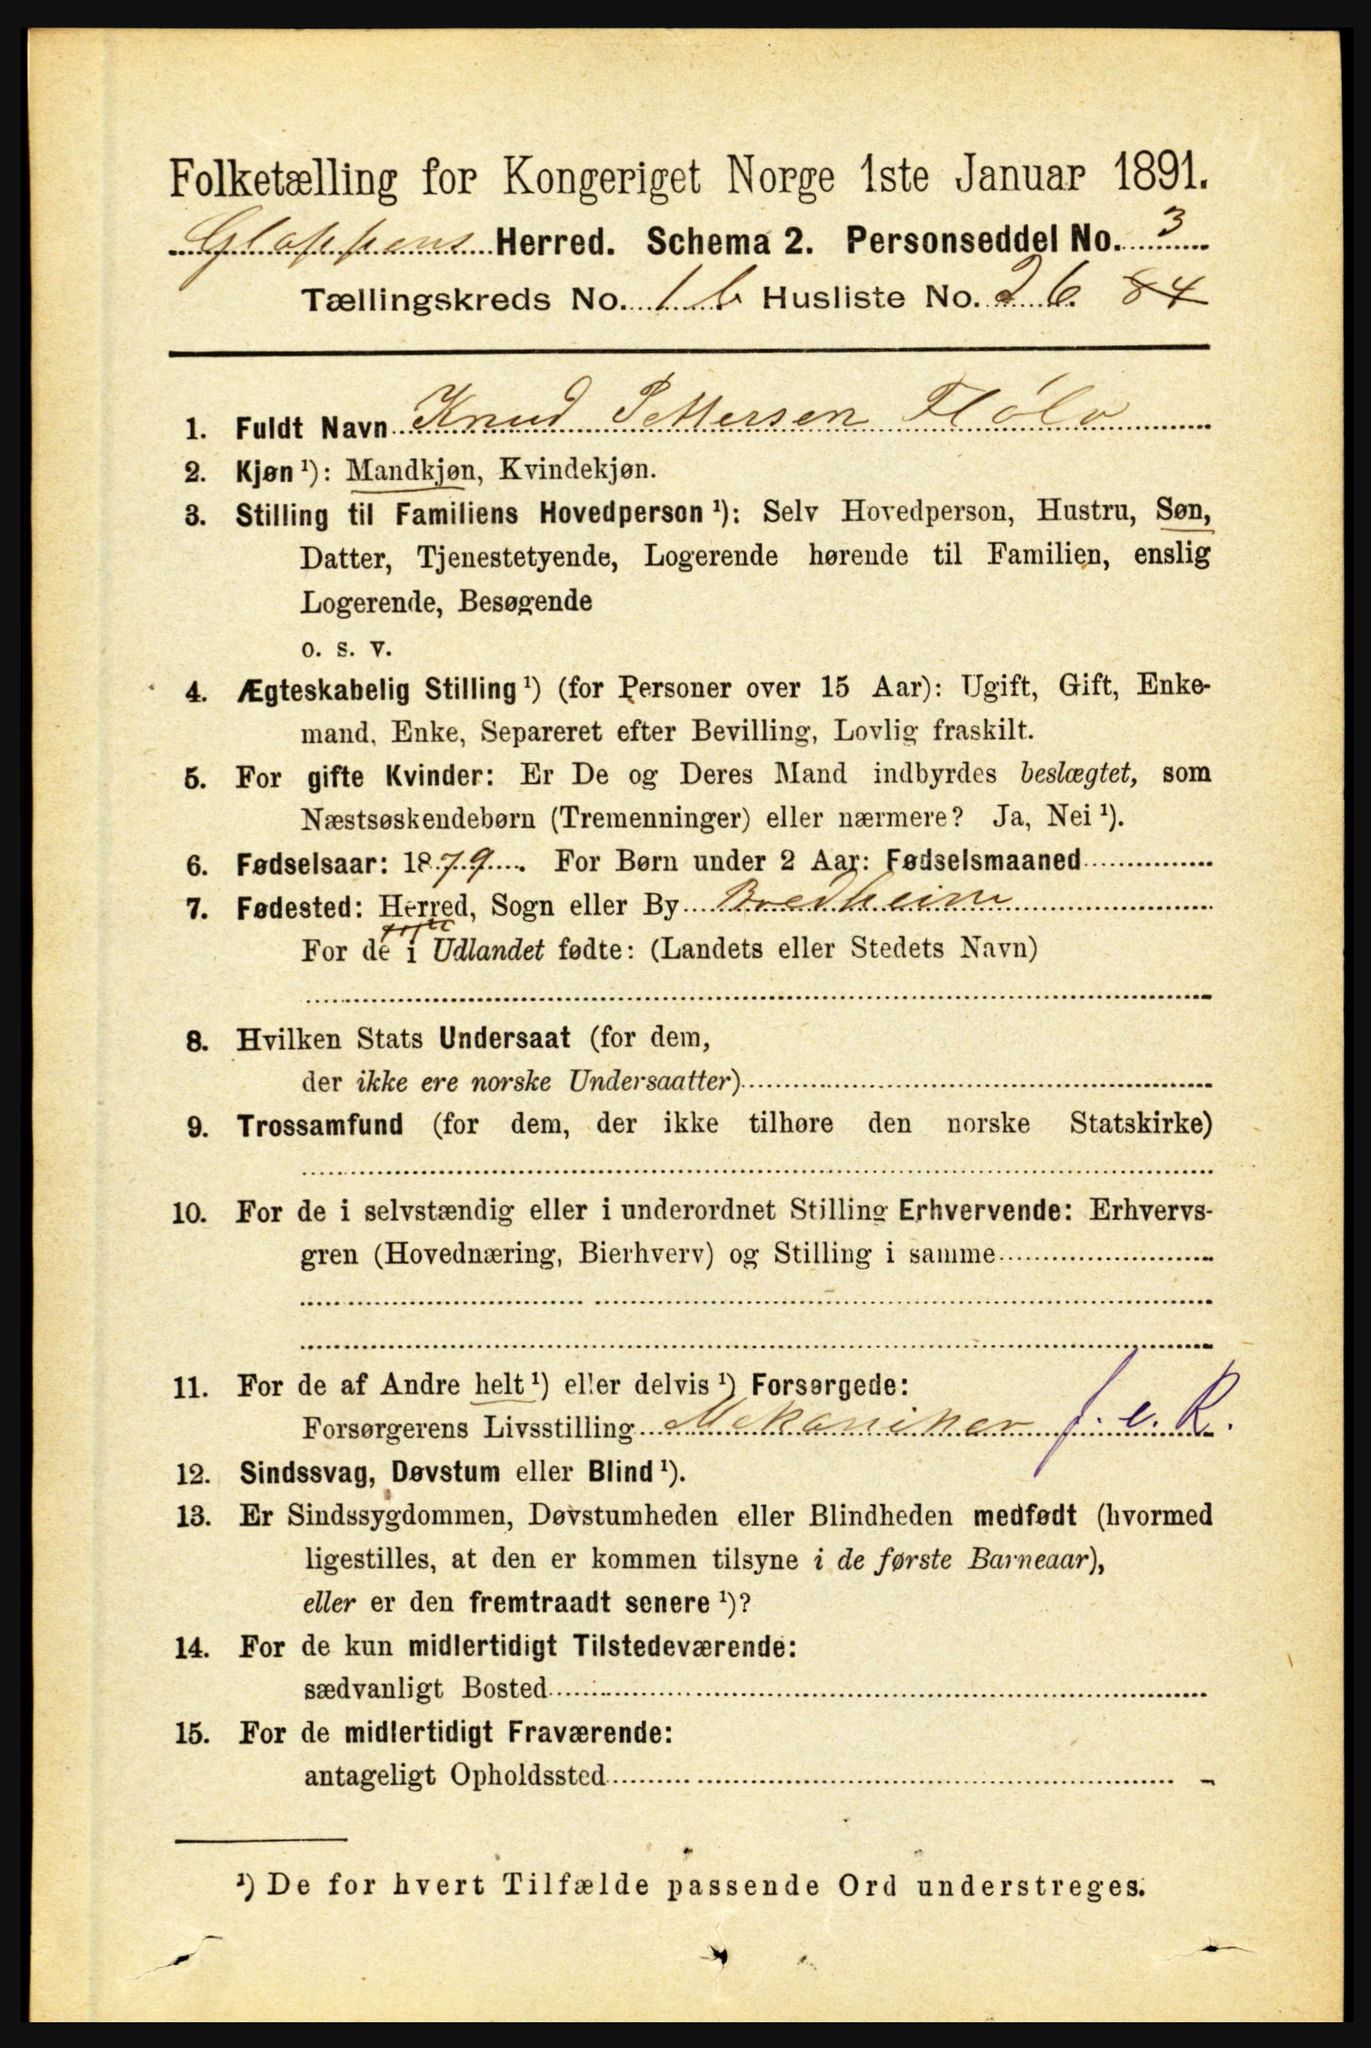 Folketælling for Kongeriget Norge 1ste Januar 1891.
Gloppens Herred. Schema 2. Personseddel No. 3
Tællingskreds No. 1 b Husliste No. 26 84
1. Fuldt Navn Knud Pettersen Flölo
2. Kjøn ¹): Mandkjøn, Kvindekjøn.
3. Stilling til Familiens Hovedperson ¹): Selv Hovedperson, Hustru, Søn,
Datter, Tjenestetyende, Logerende hørende til Familien, enslig
Logerende, Besøgende
o. s. v.
4. Ægteskabelig Stilling ¹) (for Personer over 15 Aar): Ugift, Gift, Enke-
mand, Enke, Separeret efter Bevilling, Lovlig fraskilt.
5. For gifte Kvinder: Er De og Deres Mand indbyrdes beslægtet, som
Næstsøskendebørn (Tremenninger) eller nærmere? Ja, Nei ¹).
6. Fødselsaar: 1879. For Børn under 2 Aar: Fødselsmaaned
7. Fødested: Herred, Sogn eller By Bredheim
For de i Udlandet fødte: (Landets eller Stedets Navn)
8. Hvilken Stats Undersaat (for dem,
der ikke ere norske Undersaatter)
9. Trossamfund (for dem, der ikke tilhøre den norske Statskirke)
10. For de i selvstændig eller i underordnet Stilling Erhvervende: Erhvervs-
gren (Hovednæring, Bierhverv) og Stilling i samme
11. For de af Andre helt ¹) eller delvis ¹) Forsørgede:
Forsørgerens Livsstilling Mekaniker f. e. R.
12. Sindssvag, Døvstum eller Blind ¹).
13. Er Sindssygdommen, Døvstumheden eller Blindheden medfødt (hvormed
ligestilles, at den er kommen tilsyne i de første Barneaar),
eller er den fremtraadt senere ¹)?
14. For de kun midlertidigt Tilstedeværende:
sædvanligt Bosted
15. For de midlertidigt Fraværende:
antageligt Opholdssted
¹) De for hvert Tilfælde passende Ord understreges.